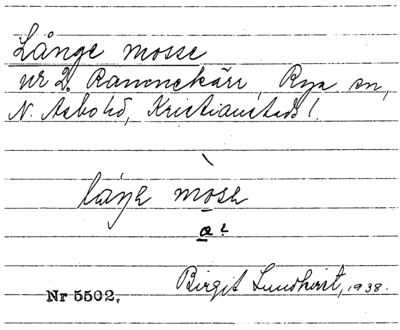 Långe mosse
nr 2. Rammekärr, Rya sn,
N. Åsbohd, Kristianstads l.
långe mose
a?
Birgit Lundkvist, 1938.
Nr 5502.